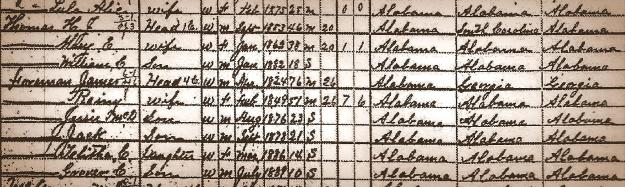 Lula Alice wife w f Feb 1875 25 m 0 0 Alabama Alabama Alabama
Thomas H. F Head w m Sep 1853 46 m 20 Alabama South Carolina Alabama
E. wife w f Jan 1862 38 m 20 1 1 Alabama Alabama Alabama
William C Son w m Jan 1882 18 S Alabama Alabama Alabama
James Head w m 1824 76 m 26 Alabama Georgia Georgia
wife w f 1849 51 m 26 7 6 Alabama Alabama Alabama
Son w m Aug 1876 23 S Alabama Alabama Alabama
Jack Son w m 1878 21 S Alabama Alabama Alabama
Daughter w f Mar 1886 14 S Alabama Alabama Alabama
Grover C. Son w m July 1889 10 S Alabama Alabama Alabama